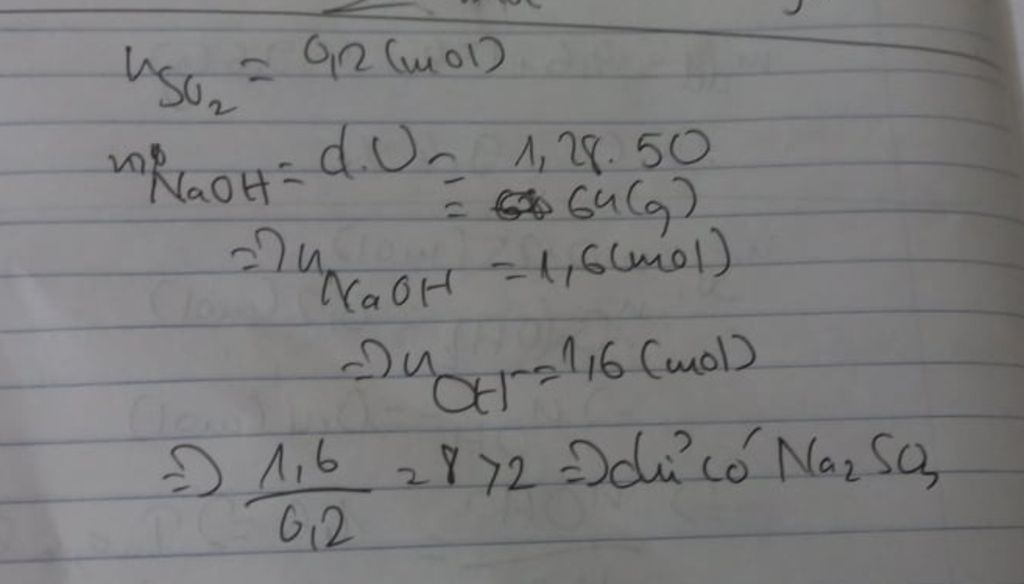 n SO₂ = 0,2 (mol)
m NaOH = d.V = 1,28.50
= 64(g)
=> n NaOH = 1,6(mol)
=> n OH⁻ = 1,6 (mol)
=> 1,6/0,2 = 8 >2 => chỉ có Na₂SO₃